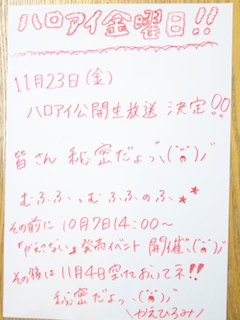 ハロアイ金曜日!!
11月23日(金)
ハロアイ公開生放送 決定!!
皆さん 秘密だょっ、(´ô`)ノ
むふふっむふふのふ、★
その前に10月7日14:00~
「かえさない」発売イベント 開催、(´ô`)ノ
その後は11月4日空けておいてネ!!
秘密だょっ、(´ô`)ノ
\かえひろみ/